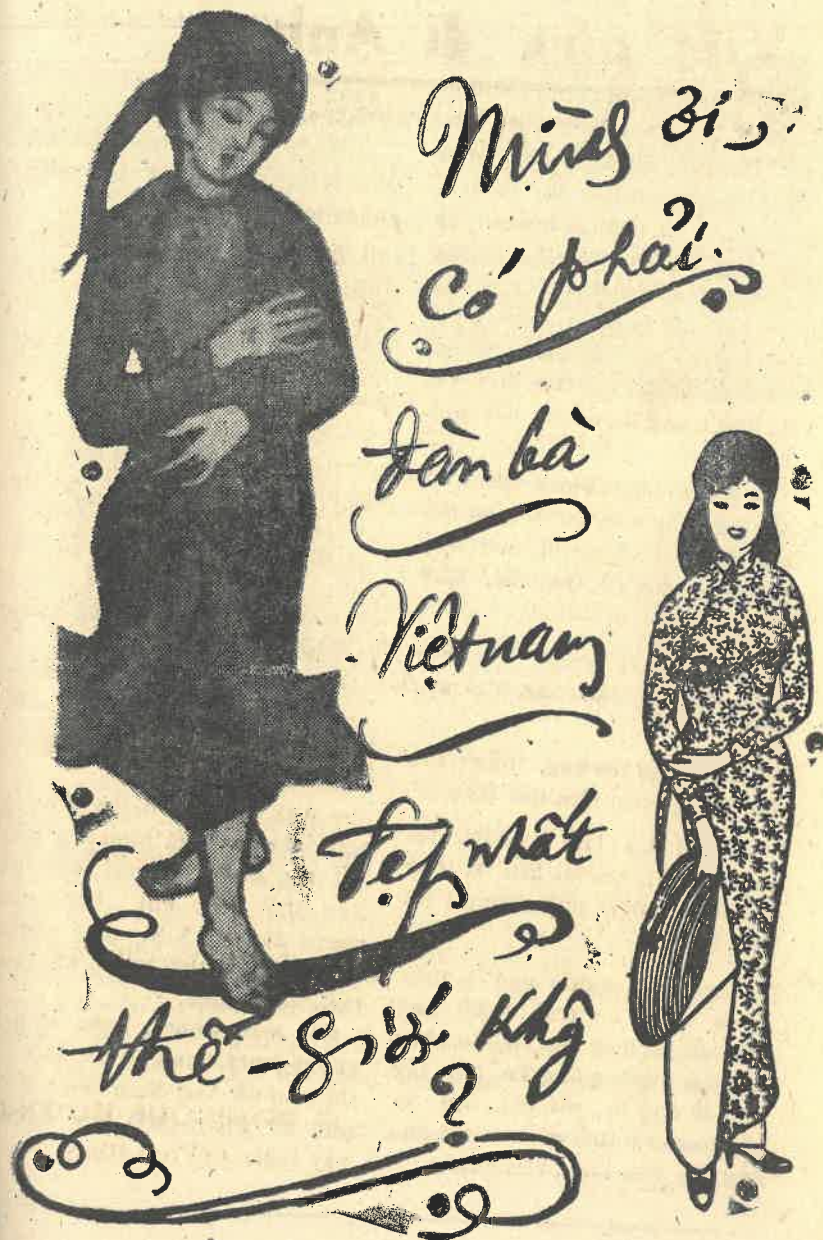 Mình ơi,
Có phải
đàn bà
Việtnam
đẹp nhất
thế-giới khg
?